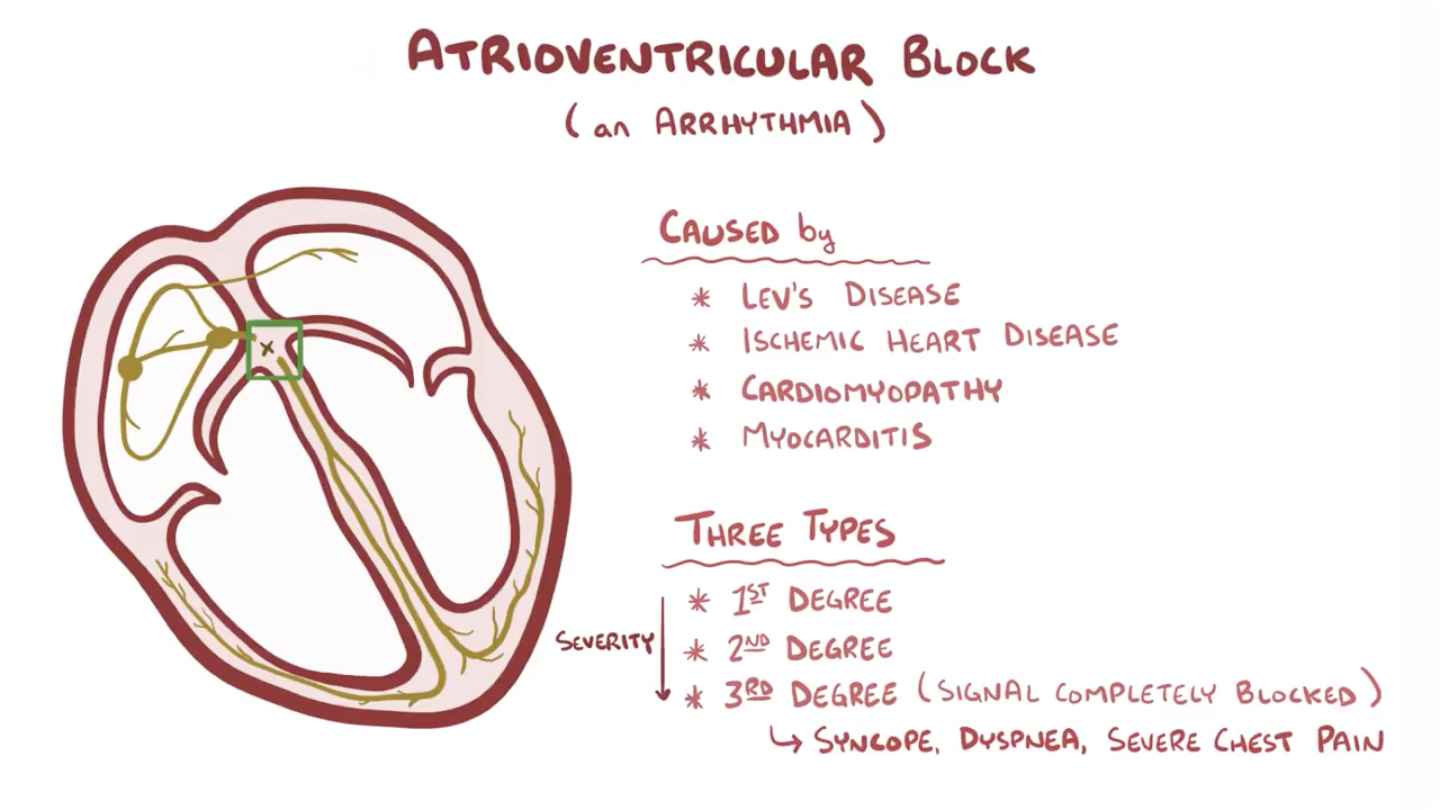 ATRIOVENTRICULAR BLOCK
(an ARRHYTHMIA)
CAUSED by
* LEV'S DISEASE
* ISCHEMIC HEART DISEASE
* CARDIOMYOPATHY
* MYOCARDITIS
THREE TYPES
* 1ST DEGREE
SEVERITY
* 2ND DEGREE
* 3RD DEGREE (SIGNAL COMPLETELY BLOCKED)
↳ SYNCOPE, DYSPNEA, SEVERE CHEST PAIN